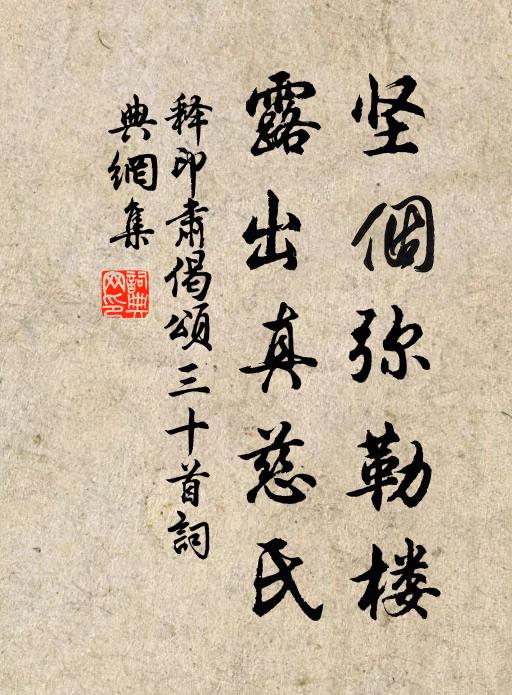 坚個弥勒楼
露出真慈氏
释印肃偈頌三十首詞
典網集
詞典网印